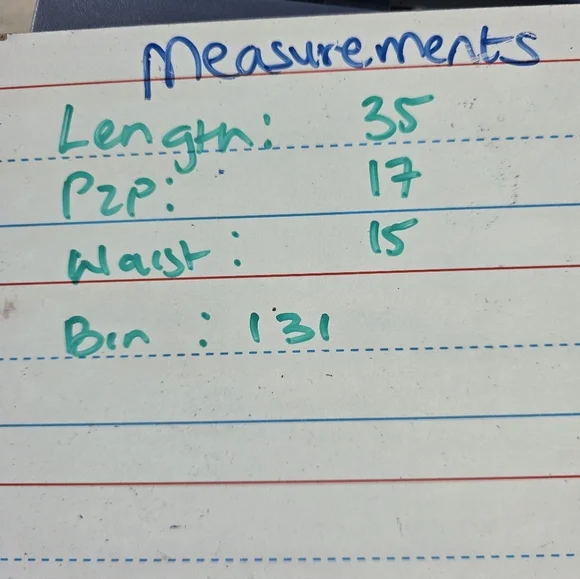 Measurements
Length: 35
P2P: 17
Waist: 15
Bin : 131